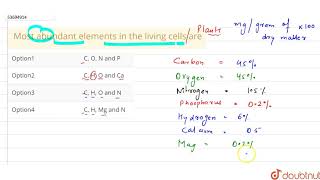 53694914
Most abundant elements in the living cells are
Option1 C, O, N and P
Option2 C, H, O and Ca
Option3 C, H, O and N
Option4 C, H, Mg and N
/ Plants mg/gram of x100
dry matter
Carbon = 45%
Oxygen = 45%
Nitrogen = 1.5%
Phosphorus = 0.2%
Hydrogen = 6%
Calcium = 0.5
Mag = 0.2%
doubtnut